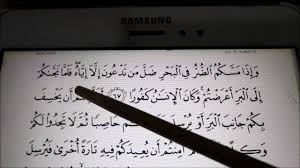 وَإِذَا مَسَّكُمُ الضُّرُّ فِي الْبَحْرِ ضَلَّ مَن تَدْعُونَ إِلَّا إِيَّاهُ فَلَمَّا نَجَّىٰكُمْ
إِلَى الْبَرِّ أَعْرَضْتُمْ وَكَانَ الْإِنسَٰنُ كَفُورًا ٦٧ أَن يَخْسِفَ
بِكُمْ جَانِبَ الْبَرِّ أَوْ يُرْسِلَ عَلَيْكُمْ حَاصِبًا ثُمَّ لَا تَجِدُوا لَكُمْ
أَمِنتُمْ أَن يُعِيدَكُمْ فِيهِ تَارَةً أُخْرَىٰ فَيُرْسِلَ